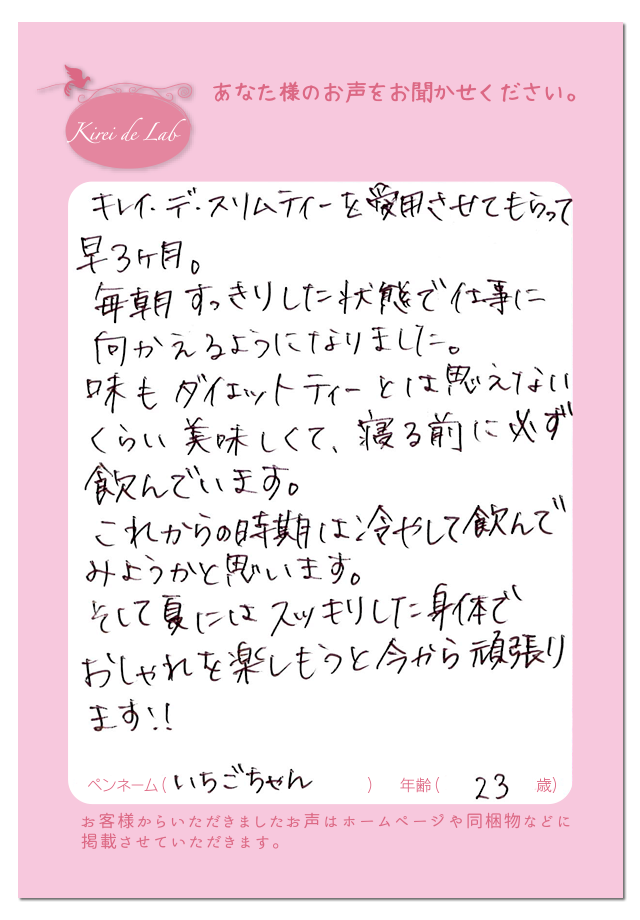 あなた様のお声をお聞かせください。
Kirei de Lab
キレイ・デ・スリムティーを愛用させてもらって
早3ヶ月。
毎朝すっきりした状態で仕事に
向かえるようになりました。
味もダイエットティーとは思えない
くらい美味しくて、寝る前に必ず
飲んでいます。
これからの時期は冷やして飲んで
みようかと思います。
そして夏にはスッキリした身体で
おしゃれを楽しもうと今から頑張り
ます!!
ペンネーム(いちごちゃん) 年齢(23歳)
お客様からいただきましたお声はホームページや同梱物などに
掲載させていただきます。